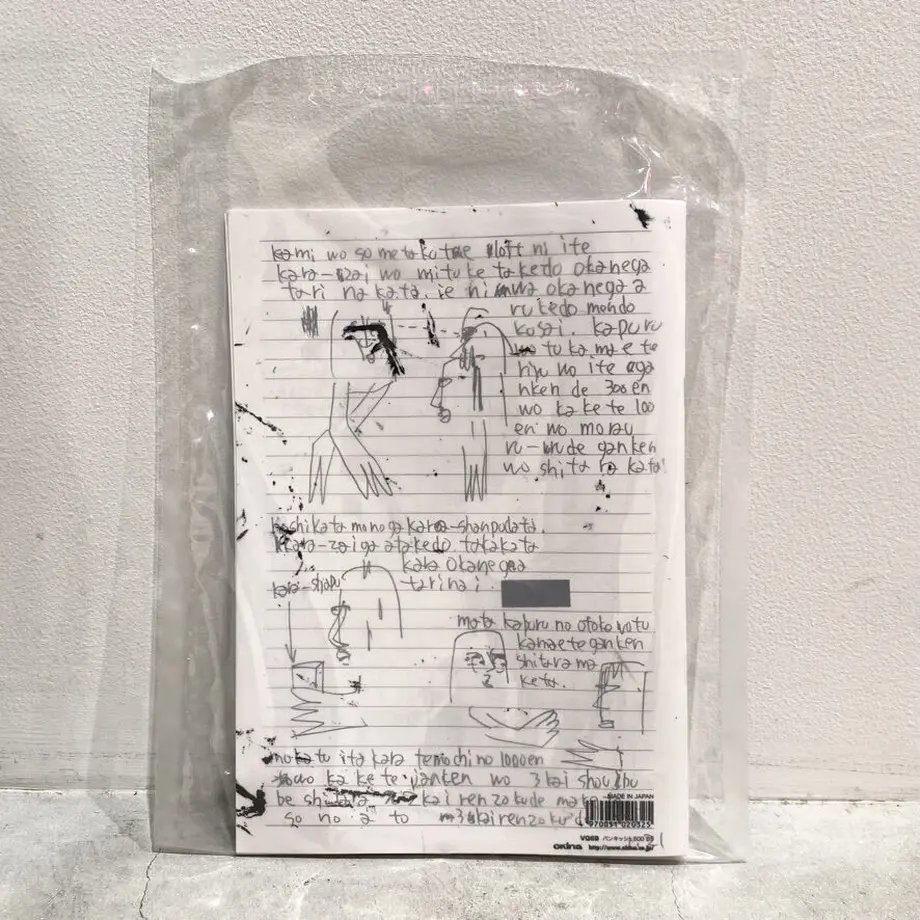 kami wo so me ta ku te loft ni ite
kara-zai wo mitu ke ta kedo okanega
tari na kata. ie ni wa okanega a
ru kedo mendo
kusai. kapuru
wo tu ka ma e te
nken de 300 en
wo ka ke te 100
en wo morau
ru-rude ganken
wo shi ta ra kata
hoshikata mono ga kara-shanpudata.
kara-zai ga atakedo. takakata
kara okanega
tari na i.
kara-shapu
mata kapuru no otoko wo tu
kamae te ganken
shitara ma
keta.
mokatu ita kara temochi no 1000en
wo ka ke te janken wo 3 kai shoubu
be shitara kai renzokude make
so no a to 3 kai renzoku d
MADE IN JAPAN
VO53
okina http://www.okina.co.jp/